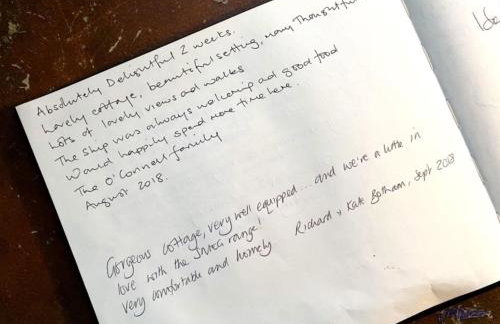 Absolutely Delightful 2 weeks.
Lovely cottage, beautiful setting, many Thoughtful
Lots of lovely views and walks
The Ship was always welcoming and good food
Would happily spend more time here...
The O'Connell family
August 2018.
Gorgeous cottage, very well equipped... and we're a little in
love with the SMEG range!
very comfortable and homely
Richard + Kate Botham, Sept 2018